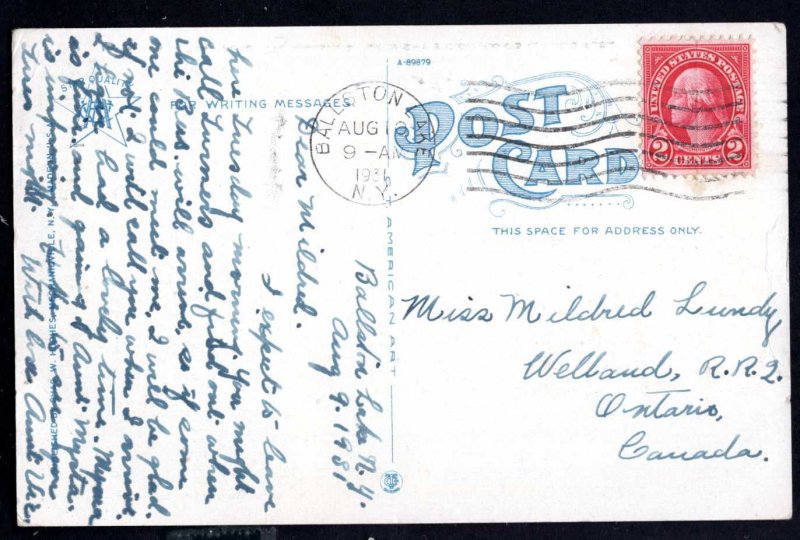 A-89879
STAR QUALITY
FOR WRITING MESSAGES
POST
CARD
THIS SPACE FOR ADDRESS ONLY.
AMERICAN ART
BALLSTON LAKE
AUG 10
9-AM
1931
N.Y.
UNITED STATES POSTAGE
2 CENTS 2
Ballston Lake N.Y.
Aug 9. 1931
Dear Mildred.
I expect to leave
here Tuesday morning. You might
call Turners and find out when
the Bus. will arrive, so if some
one could meet me, I will be glad.
if not, I will call you when I arrive.
I have had a lovely time.
is fine and gaining & Aunt
is improving.
With love Aunt
Miss Mildred Lundy
Welland, R.R.2.
Ontario,
Canada.